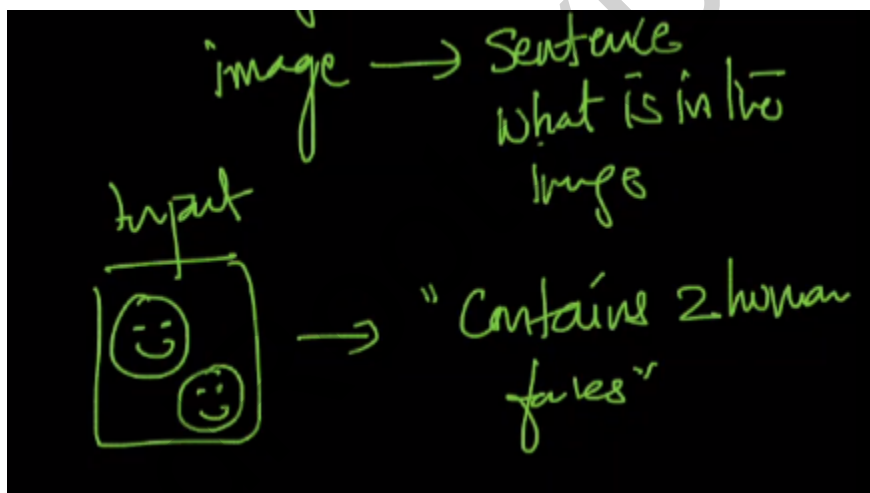 image → Sentence
What is in the
image
Input
→ "Contains 2 human
faces"